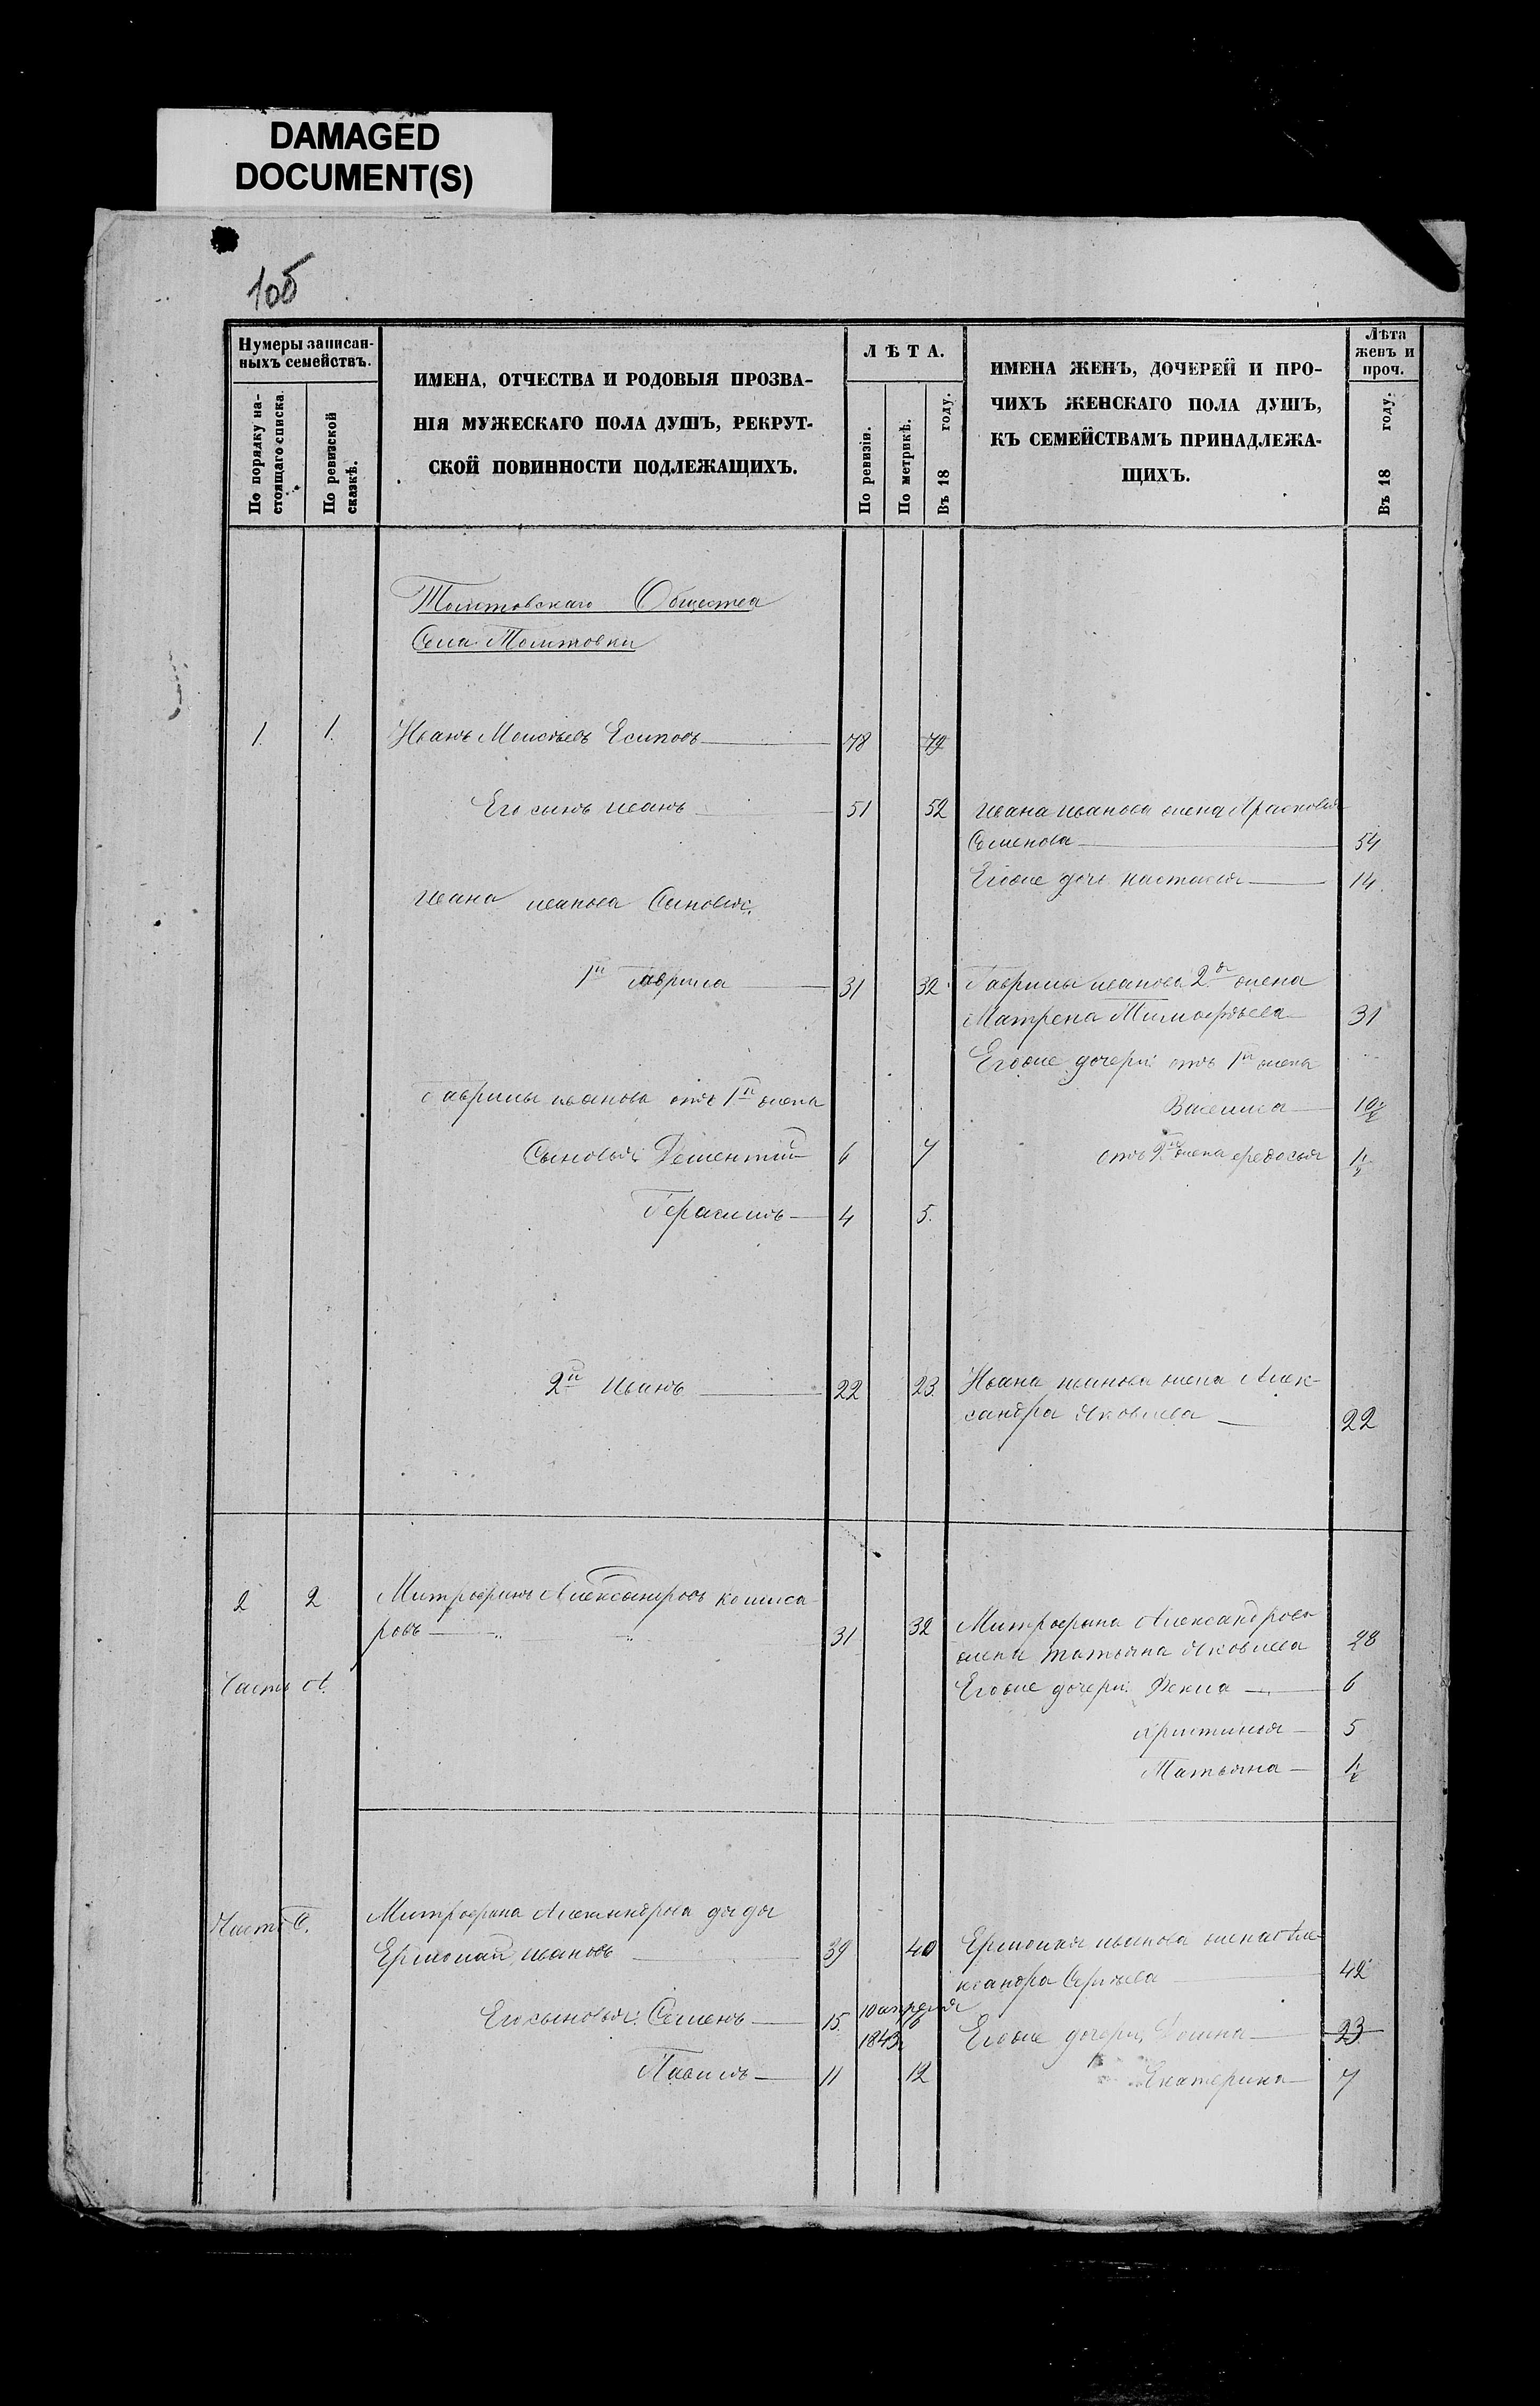 DAMAGED
DOCUMENT(S)
105
Нумеры записан-
ныхъ семействъ.
По порядку на-
стоящаго списка.
По ревизской
сказкѣ.
ИМЕНА, ОТЧЕСТВА И РОДОВЫЯ ПРОЗВА-
НІЯ МУЖЕСКАГО ПОЛА ДУШЪ, РЕКРУТ-
СКОЙ ПОВИННОСТИ ПОДЛЕЖАЩИХЪ.
ЛѢТА.
По ревизіи.
По метрикѣ.
Въ 18 году.
ИМЕНА ЖЕНЪ, ДОЧЕРЕЙ И ПРО-
ЧИХЪ ЖЕНСКАГО ПОЛА ДУШЪ,
КЪ СЕМЕЙСТВАМЪ ПРИНАДЛЕЖА-
ЩИХЪ.
Лѣта
женъ и
проч.
Въ 18 году.
Общества
Села
1. 1. Иванъ Моисѣевъ Есиповъ 78 79
Его сынъ Иванъ 51 52 Ивана Иванова жена Прасковья
Семенова 54
Егоже дочь Настасья 14.
Ивана Иванова Сыновья:
1й Гаврила 31 32 Гаврилы Иванова 2я жена
Матрена Тимофѣева 31
Егоже дочери: отъ 1й жены
Гаврилы Иванова отъ 1й жены
Василиса 10½
Сыновья: Дементий 6 7 отъ 2й жены Федосья ½
Герасимъ 4 5.
2й Иванъ 22 23. Ивана Иванова жена Алек-
сандра Яковлева 22
2 2 Митрофанъ Александровъ Комиса
ровъ 31 32 Митрофана Александрова
жена Татьяна Яковлева 28
Часть А. Егоже дочери: Фекла 6
Христинья 5
Татьяна ½
Часть Б. Митрофана Александрова дядя
Ермолай Ивановъ 39 40 Ермолая Иванова жена Але-
ксандра Сергѣева 42
Его сыновья: Семенъ 15. 10 апреля 16
1843. Егоже дочери, Домна 23
Павилъ 11 12 Екатерина 7